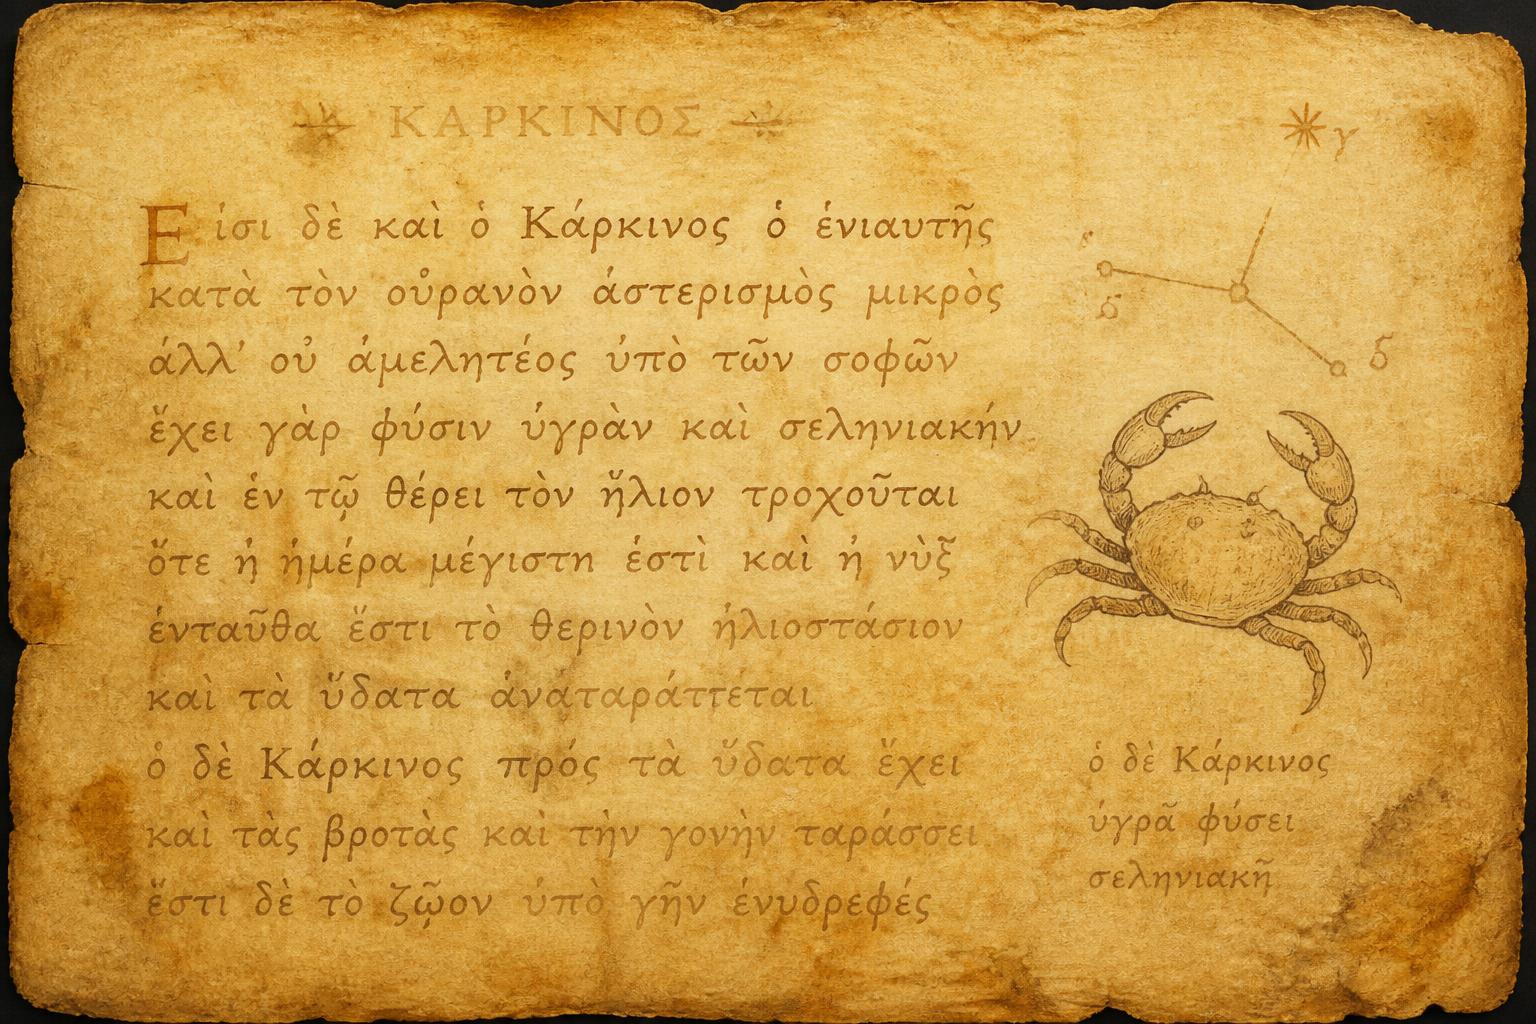 ΚΑΡΚΙΝΟΣ
Εἰσι δὲ καὶ ὁ Κάρκινος ὁ ἐνιαυτῆς
κατὰ τὸν οὐρανὸν ἀστερισμὸς μικρὸς
ἀλλ' οὐ ἀμελητέος ὑπὸ τῶν σοφῶν
ἔχει γὰρ φύσιν ὑγρὰν καὶ σεληνιακήν
καὶ ἐν τῷ θέρει τὸν ἥλιον τροχοῦται
ὅτε ἡ ἡμέρα μέγιστη ἐστὶ καὶ ἡ νὺξ
ἐνταῦθα ἔστι τὸ θερινὸν ἡλιοστάσιον
καὶ τὰ ὕδατα ἀναταράττεται
ὁ δὲ Κάρκινος πρός τὰ ὕδατα ἔχει
καὶ τὰς βροτὰς καὶ τὴν γονὴν ταράσσει
ἔστι δὲ τὸ ζῷον ὑπὸ γῆν ἐνυδρεφές
γ
δ
ὁ δὲ Κάρκινος
ὑγρᾶ φύσει
σεληνιακῆ